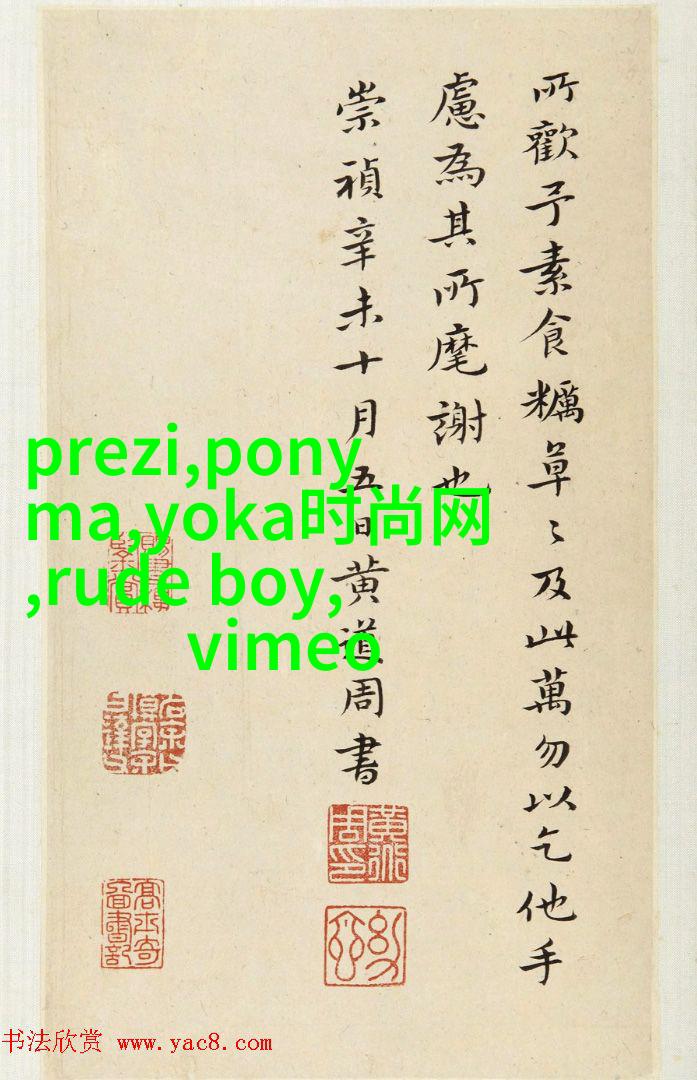 所歡予素食糲草〻及此萬勿以乞他手
慮為其所麾謝也
崇禎辛未十月五日黄道周書
黄道周印
高士奇
prezi,pony
ma,yoka时尚网
,rude boy,
vimeo
书法欣赏 www.yac8.com